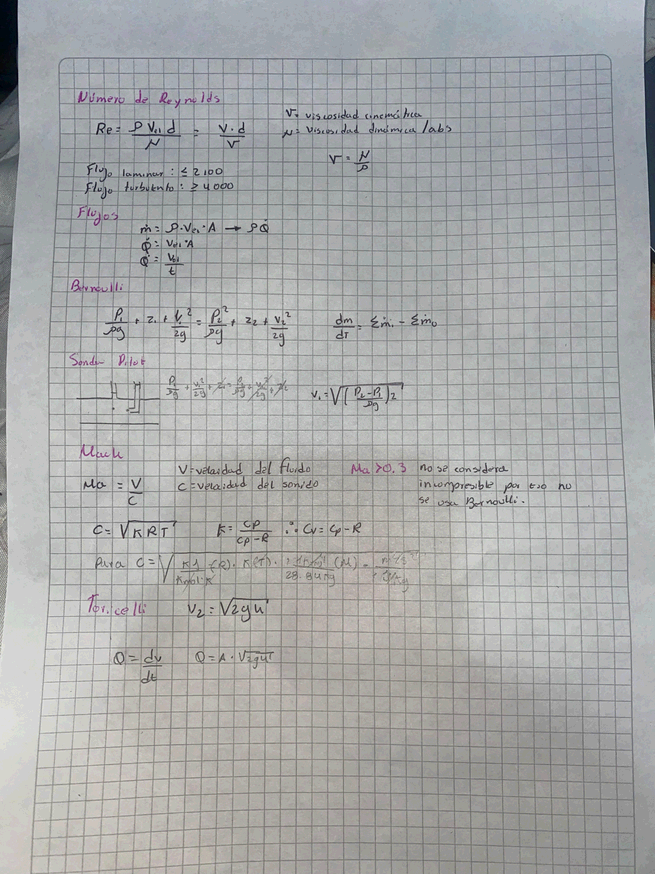 Número de Reynolds
Re = ρ Vel d / μ = V · d / ν
ν = viscosidad cinemática
μ = viscosidad dinámica /abs
ν = μ / ρ
Flujo laminar : ≤ 2100
Flujo turbulento : ≥ 4000
Flujos
ṁ = ρ · Vel · A → ρQ̇
Q̇ = Vel · A
Q̇ = Vol / t
Bernoulli
P₁/ρg + z₁ + V₁²/2g = P₂²/ρg + z₂ + V₂²/2g
dm/dT = Σṁᵢ - Σṁₒ
Sonda Pitot
P₁/ρg + V₁²/2g + z₁ = P₂/ρg + V₂²/2g + z₂
V₁ = √((P₂-P₁ / ρg) 2
Mach
Ma = V / C
V = velocidad del fluido
C = velocidad del sonido
Ma > 0,3 no se considera
incompresible por eso no
se usa Bernoulli.
C = √KRT
K = cp / cp-R ∴ Cv = Cp - R
Para C = √
Toricelli V₂ = √2gh
Q = dv / dt
Q = A · √2gh